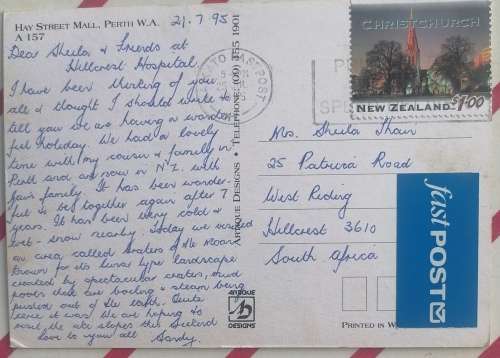 HAY STREET MALL, PERTH W.A.
A 157
21.7.95
Dear Sheila & friends at
Hillcrest Hospital,
I have been thinking of you
all & thought I should write to
tell you we are having a wonder-
ful holiday. We had a lovely
time with my cousin & family in
Perth and are now in N.Z. with
family. It has been wonder-
ful to be together again after 7
years. It has been very cold &
wet - snow nearby. Today we visited
an area called Craters of the Moon
known for its lunar type landscape
created by spectacular craters, mud
pools that are boiling & steam being
pushed out of the earth. Quite
eerie it was. We are hoping to
visit the ski slopes this weekend
Love to you all Sandy.
ARTIQUE DESIGNS • TELEPHONE: (09) 455 1901
ARTIQUE
DESIGNS
CHRISTCHURCH
NEW ZEALAND
$1.00
FAST POST
Ms. Sheila
25 Patricia Road
West Riding
Hillcrest 3610
South Africa
fastPOST
PRINTED IN W